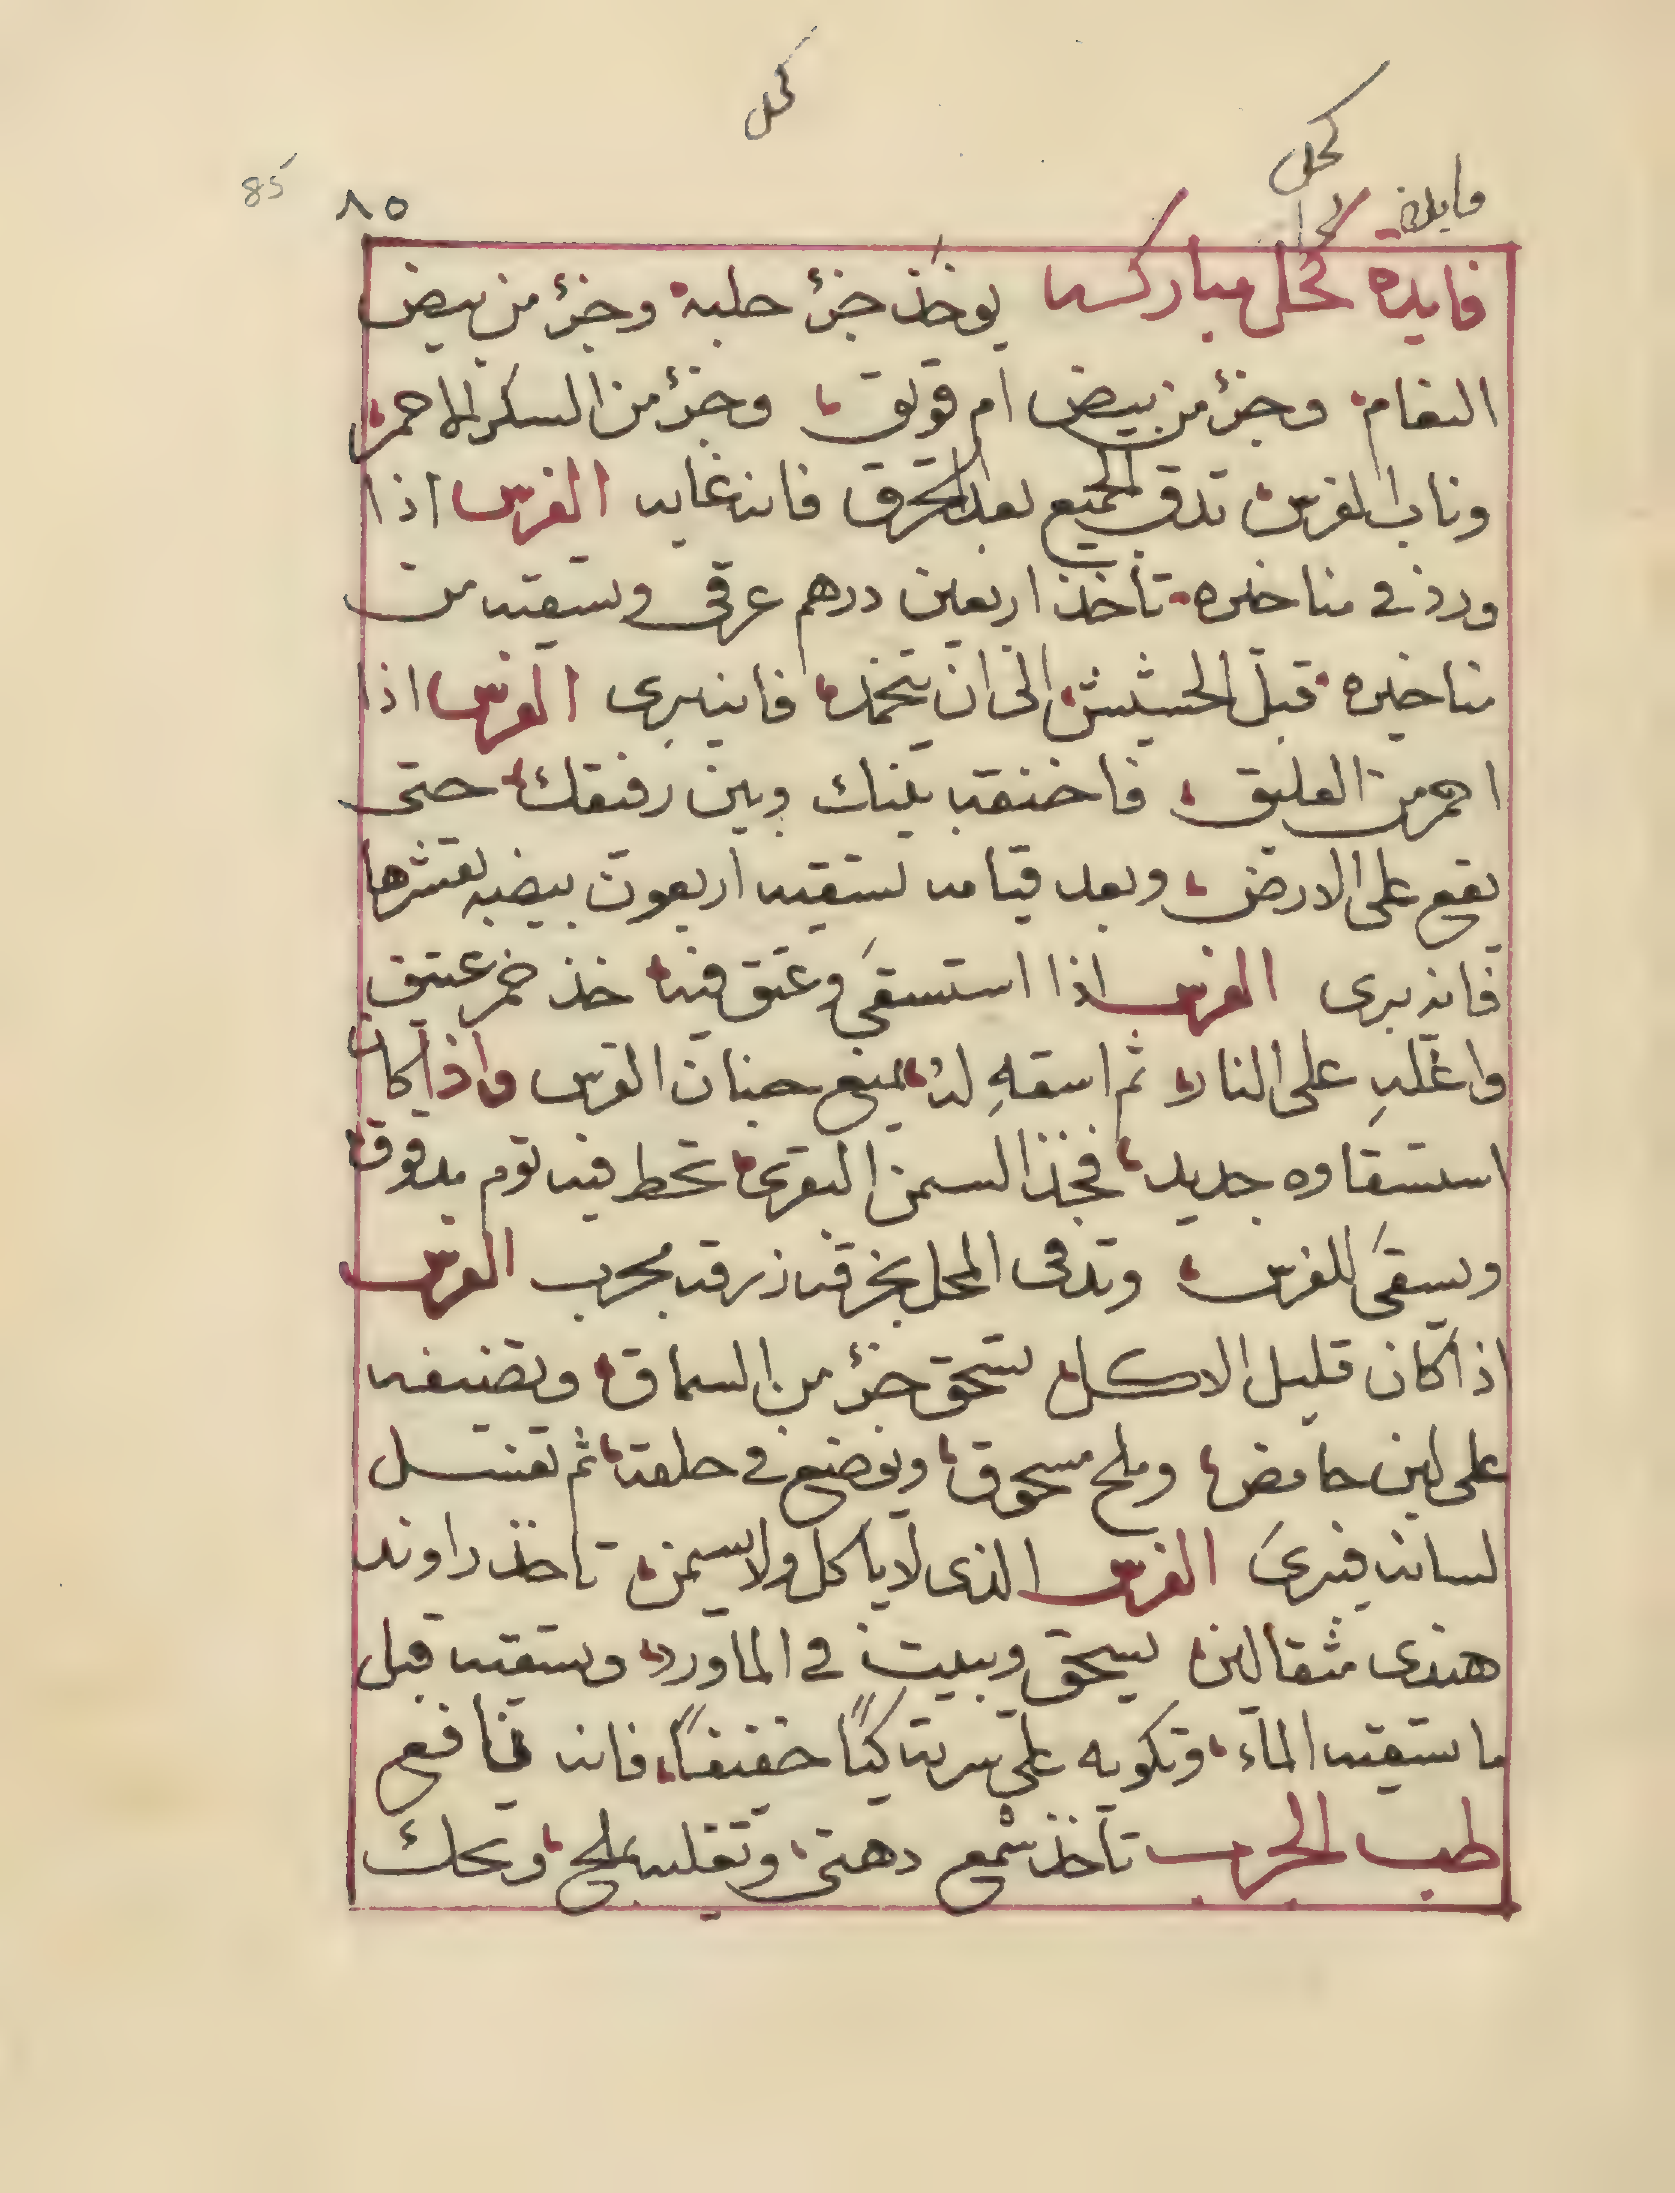 كحل
كحل
فايده
85
٨٥
فايده كحل مباركه يوخذ جزؤ حلبه وجزؤ من بيض
النعام وجزؤ من بيض ام قويق وجزؤ من السكر الاحمر
وناب الفرس تدق الجميع بعد الحرق فانه غايه الفرس اذا
ورد في مناخيره تاخذ اربعين درهم عرقى وتسقيه من
مناخيره قبل الحشيش الى ان يتخمد فانه يبرى الفرس اذا
احمر من العليق فاخنقه بينك وبين رفيقك حتى
يقع على الارض وبعد قيامه تسقيه اربعون بيضه بقشرها
فانه يبرى الفرس اذا استسقى وعتق فيه خذ خمر عتيق
واغلهِ على النار ثم اسقهِ له يمنع حبنان الفرس واذا كان
استسقاوه جديد فخذ السمن البقرى تحط فيه توم مدقوق
ويسقى للفرس وتدفى المحل بخرقه زرقه مجرب الفرس
اذا كان قليل الاكل تسحق جزؤ من السماق وتضيفه
على لبن حامض وملح مسحوق ويوضع في حلقه ثم تغسل
لسانه فيبرى الفرس الذى لا ياكل ولا يسمن تاخذ راوند
هندى مثقالين يسحق ويبيت في الماورد وتسقيه قبل
ما تسقيه المآء وتكويه على سرته كيًا خفيفًا فانه نافع
طب الجرب تاخذ شمع دهنى وتغليه بملح وتحك